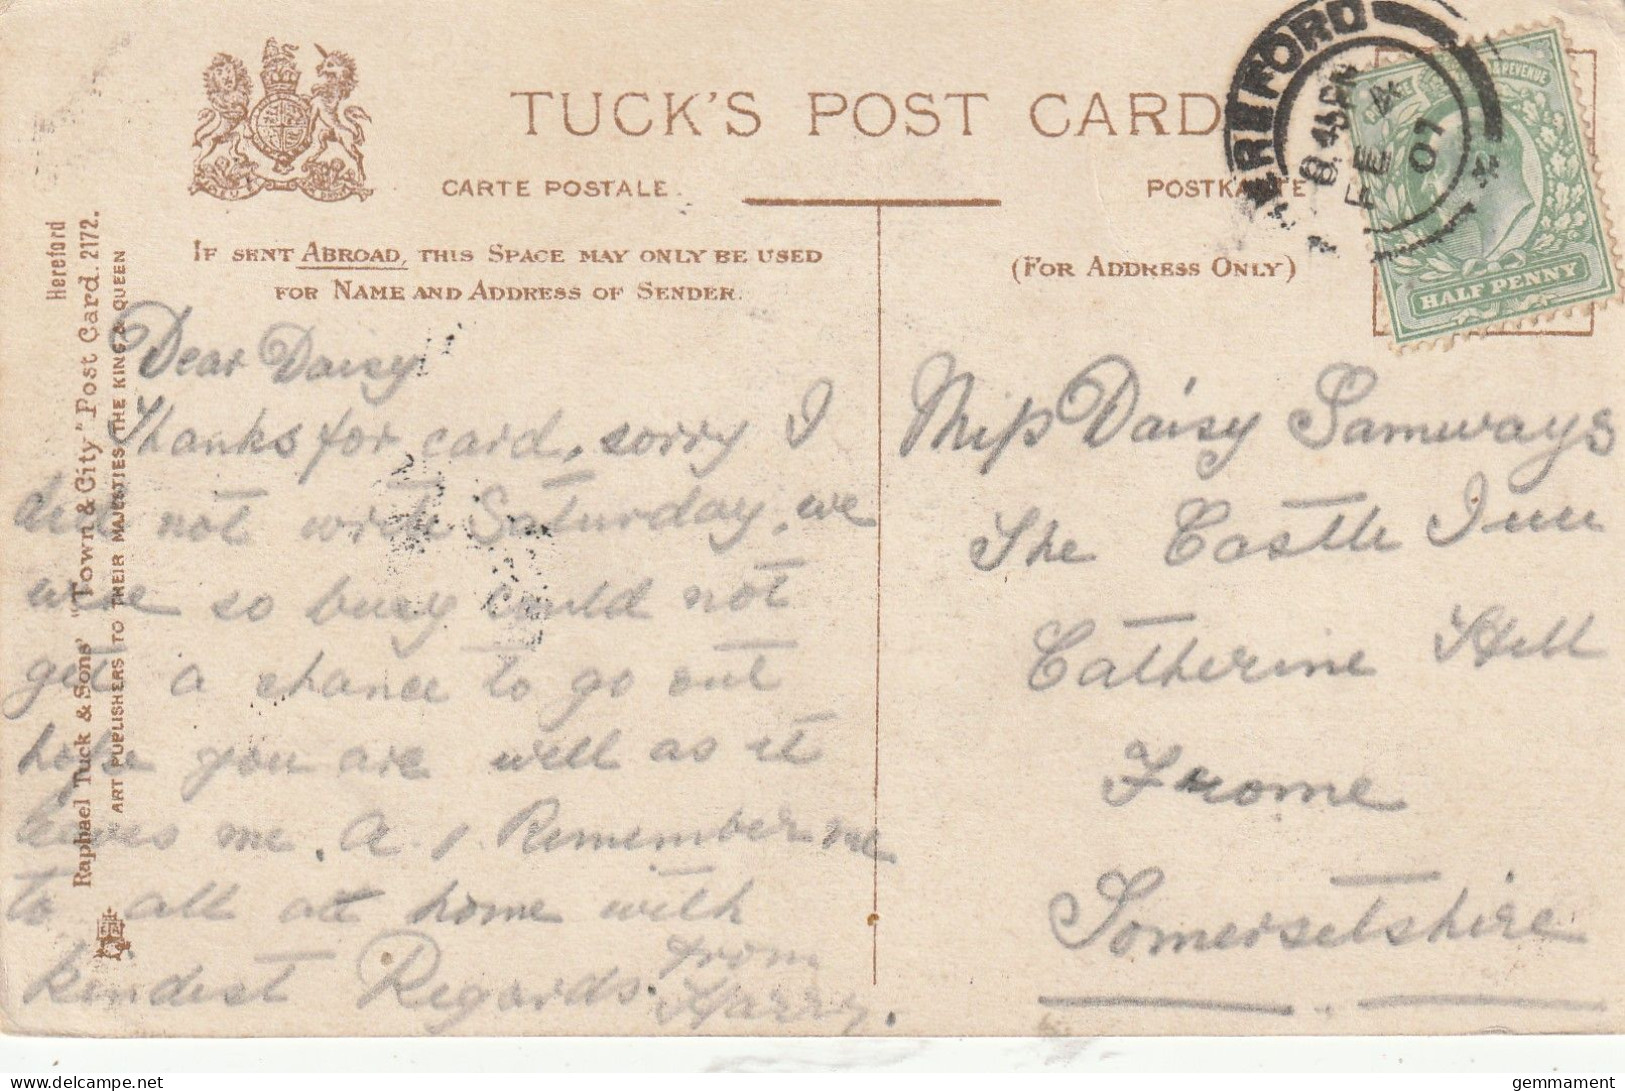 TUCK'S POST CARD
CARTE POSTALE.
POSTKARTE
IF SENT ABROAD, THIS SPACE MAY ONLY BE USED
FOR NAME AND ADDRESS OF SENDER.
(FOR ADDRESS ONLY)
Hereford
Raphael Tuck & Sons' "Town & City" Post Card. 2172.
ART PUBLISHERS TO THEIR MAJESTIES THE KING & QUEEN
HEREFORD
FE 4
07
& REVENUE
HALF PENNY
Dear Daisy
Thanks for card, sorry I
did not write Saturday, we
were so busy could not
get a chance to go out
hope you are well as it
leaves me. A 1 Remember me
to all at home with
kindest Regards. from
Harry.
Miss Daisy Samways
The Castle Inn
Catherine Hill
Frome
Somersetshire
delcampe.net
gemmament